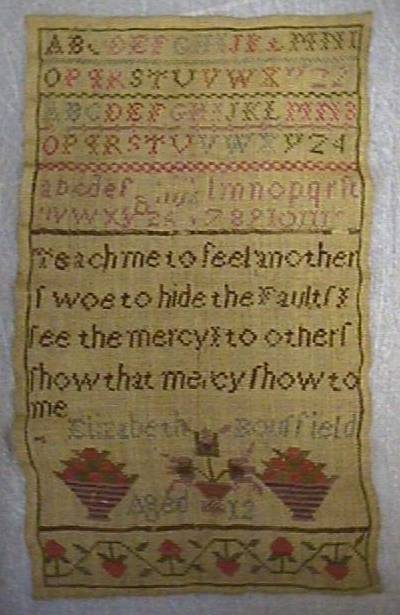 ABCDEFGHIJKLMN
OPQRSTUVWXYZ
ABCDEFGHIJKLMN3
OPQRSTUVWXYZ4
abcdefghijklmnopqrſt
uvwxyz 7891011
Teach me to feel another
ſ woe to hide the Fault I
ſee the mercy I to otherſ
ſhow that mercy ſhow to
me
Elizabeth Bouſfield
Aged 12